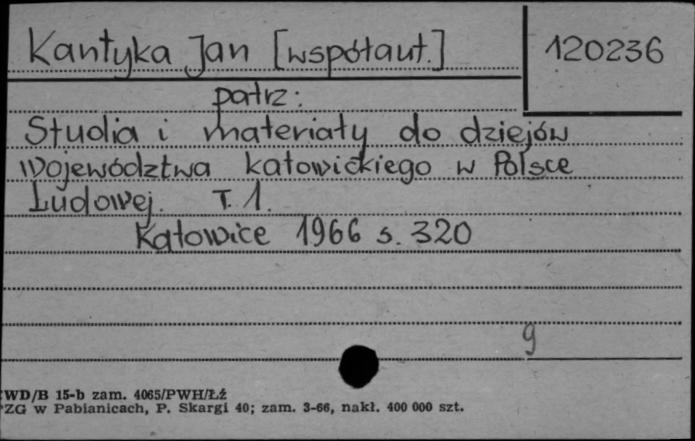 Kantyka Jan [współaut.]
120236
patrz:
Studia i materiały do dziejów
województwa katowickiego w Polsce
Ludowej. T. 1.
Katowice 1966 s. 320
g
WD/B 15-b zam. 4065/PWH/Łź
PZG w Pabianicach, P. Skargi 40; zam. 3-66, nakł. 400 000 szt.